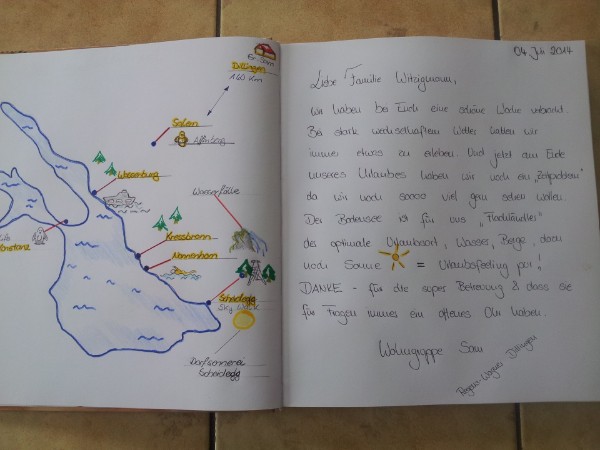 Dillingen
160 km
Salem
Affenberg
Wasserfälle
Kressbronn
Nonnenhorn
Scheidegg
Sky Walk
Dorfsennerei
Scheidegg
04. Juli 2014
Liebe Familie Witzigmann,
wir haben bei Euch eine schöne Woche verbracht.
Bei stark wechselhaftem Wetter hatten wir
immer etwas zu erleben. Und jetzt am Ende
unseres Urlaubes haben wir noch ein „Zeitproblem"
da wir noch soooo viel gern sehen wollen.
Der Bodensee ist für uns „Flachländler"
der optimale Urlaubsort, Wasser, Berge, dann
noch Sonne = Urlaubsfeeling pur!
DANKE - für die super Betreuung & dass sie
für Fragen immer ein offenes Ohr haben.
Wohngruppe Sam
Dillingen